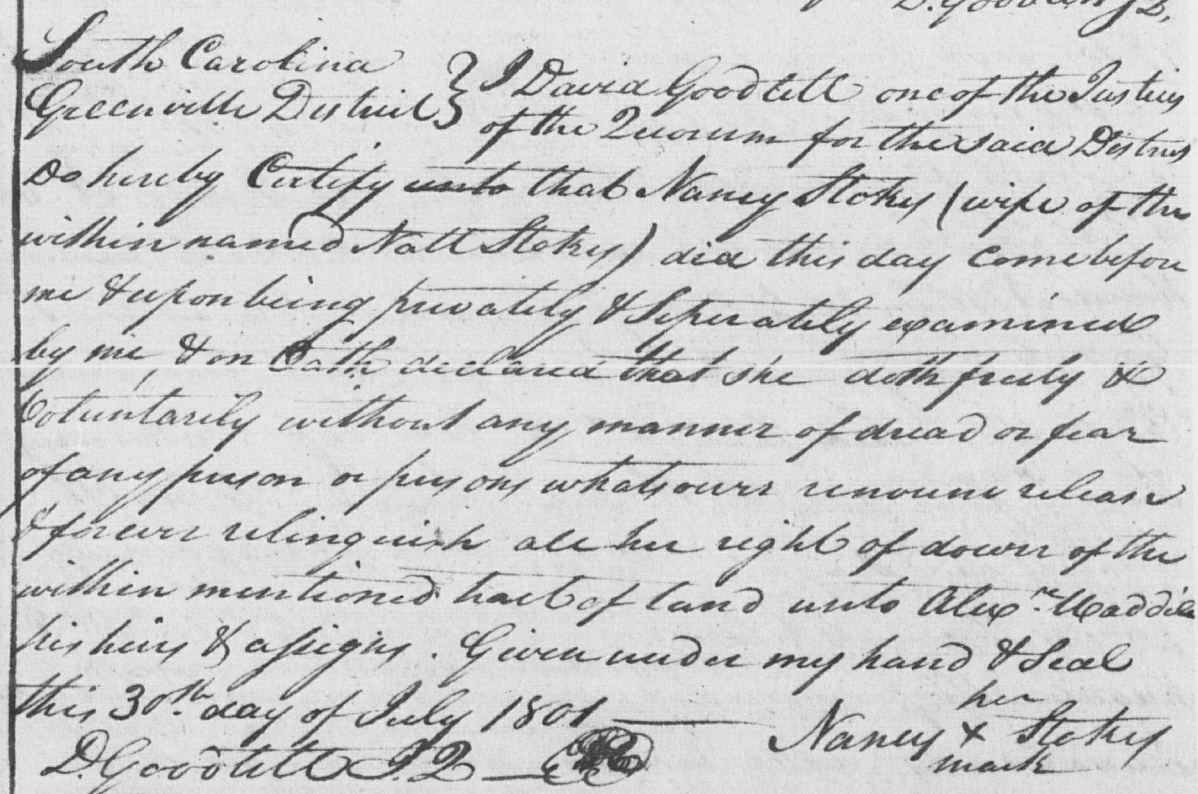 D. Goodlett J Q.
South Carolina
Greenville District } I David Goodlett one of the Justices
of the Quorum for the said District
Do hereby Certify unto that Nancy Stokes (wife of the
within named Natt Stokes) did this day come before
me & upon being privately & Seperately examined
by me & on Oath declared that she doth freely &
Voluntarily without any manner of dread or fear
of any person or persons whatsoever renounce release
& forever relinquish all her right of dower of the
within mentioned tract of land unto Alexr.
his heirs & assigns. Given under my hand & Seal
this 30th day of July 1801
her
Nancy X Stokes
mark
D. Goodlett J. Q